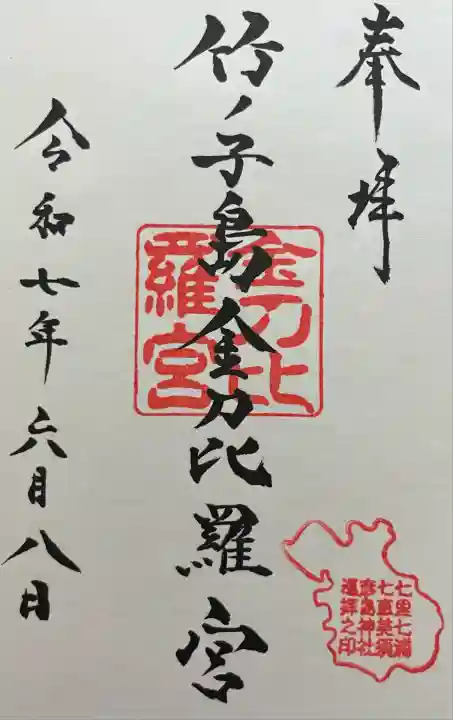 奉拝
竹ノ子島金刀比羅宮
金刀比
羅宮
令和七年六月八日
七里七浦
七恵美須
彦島神社
遥拝之印